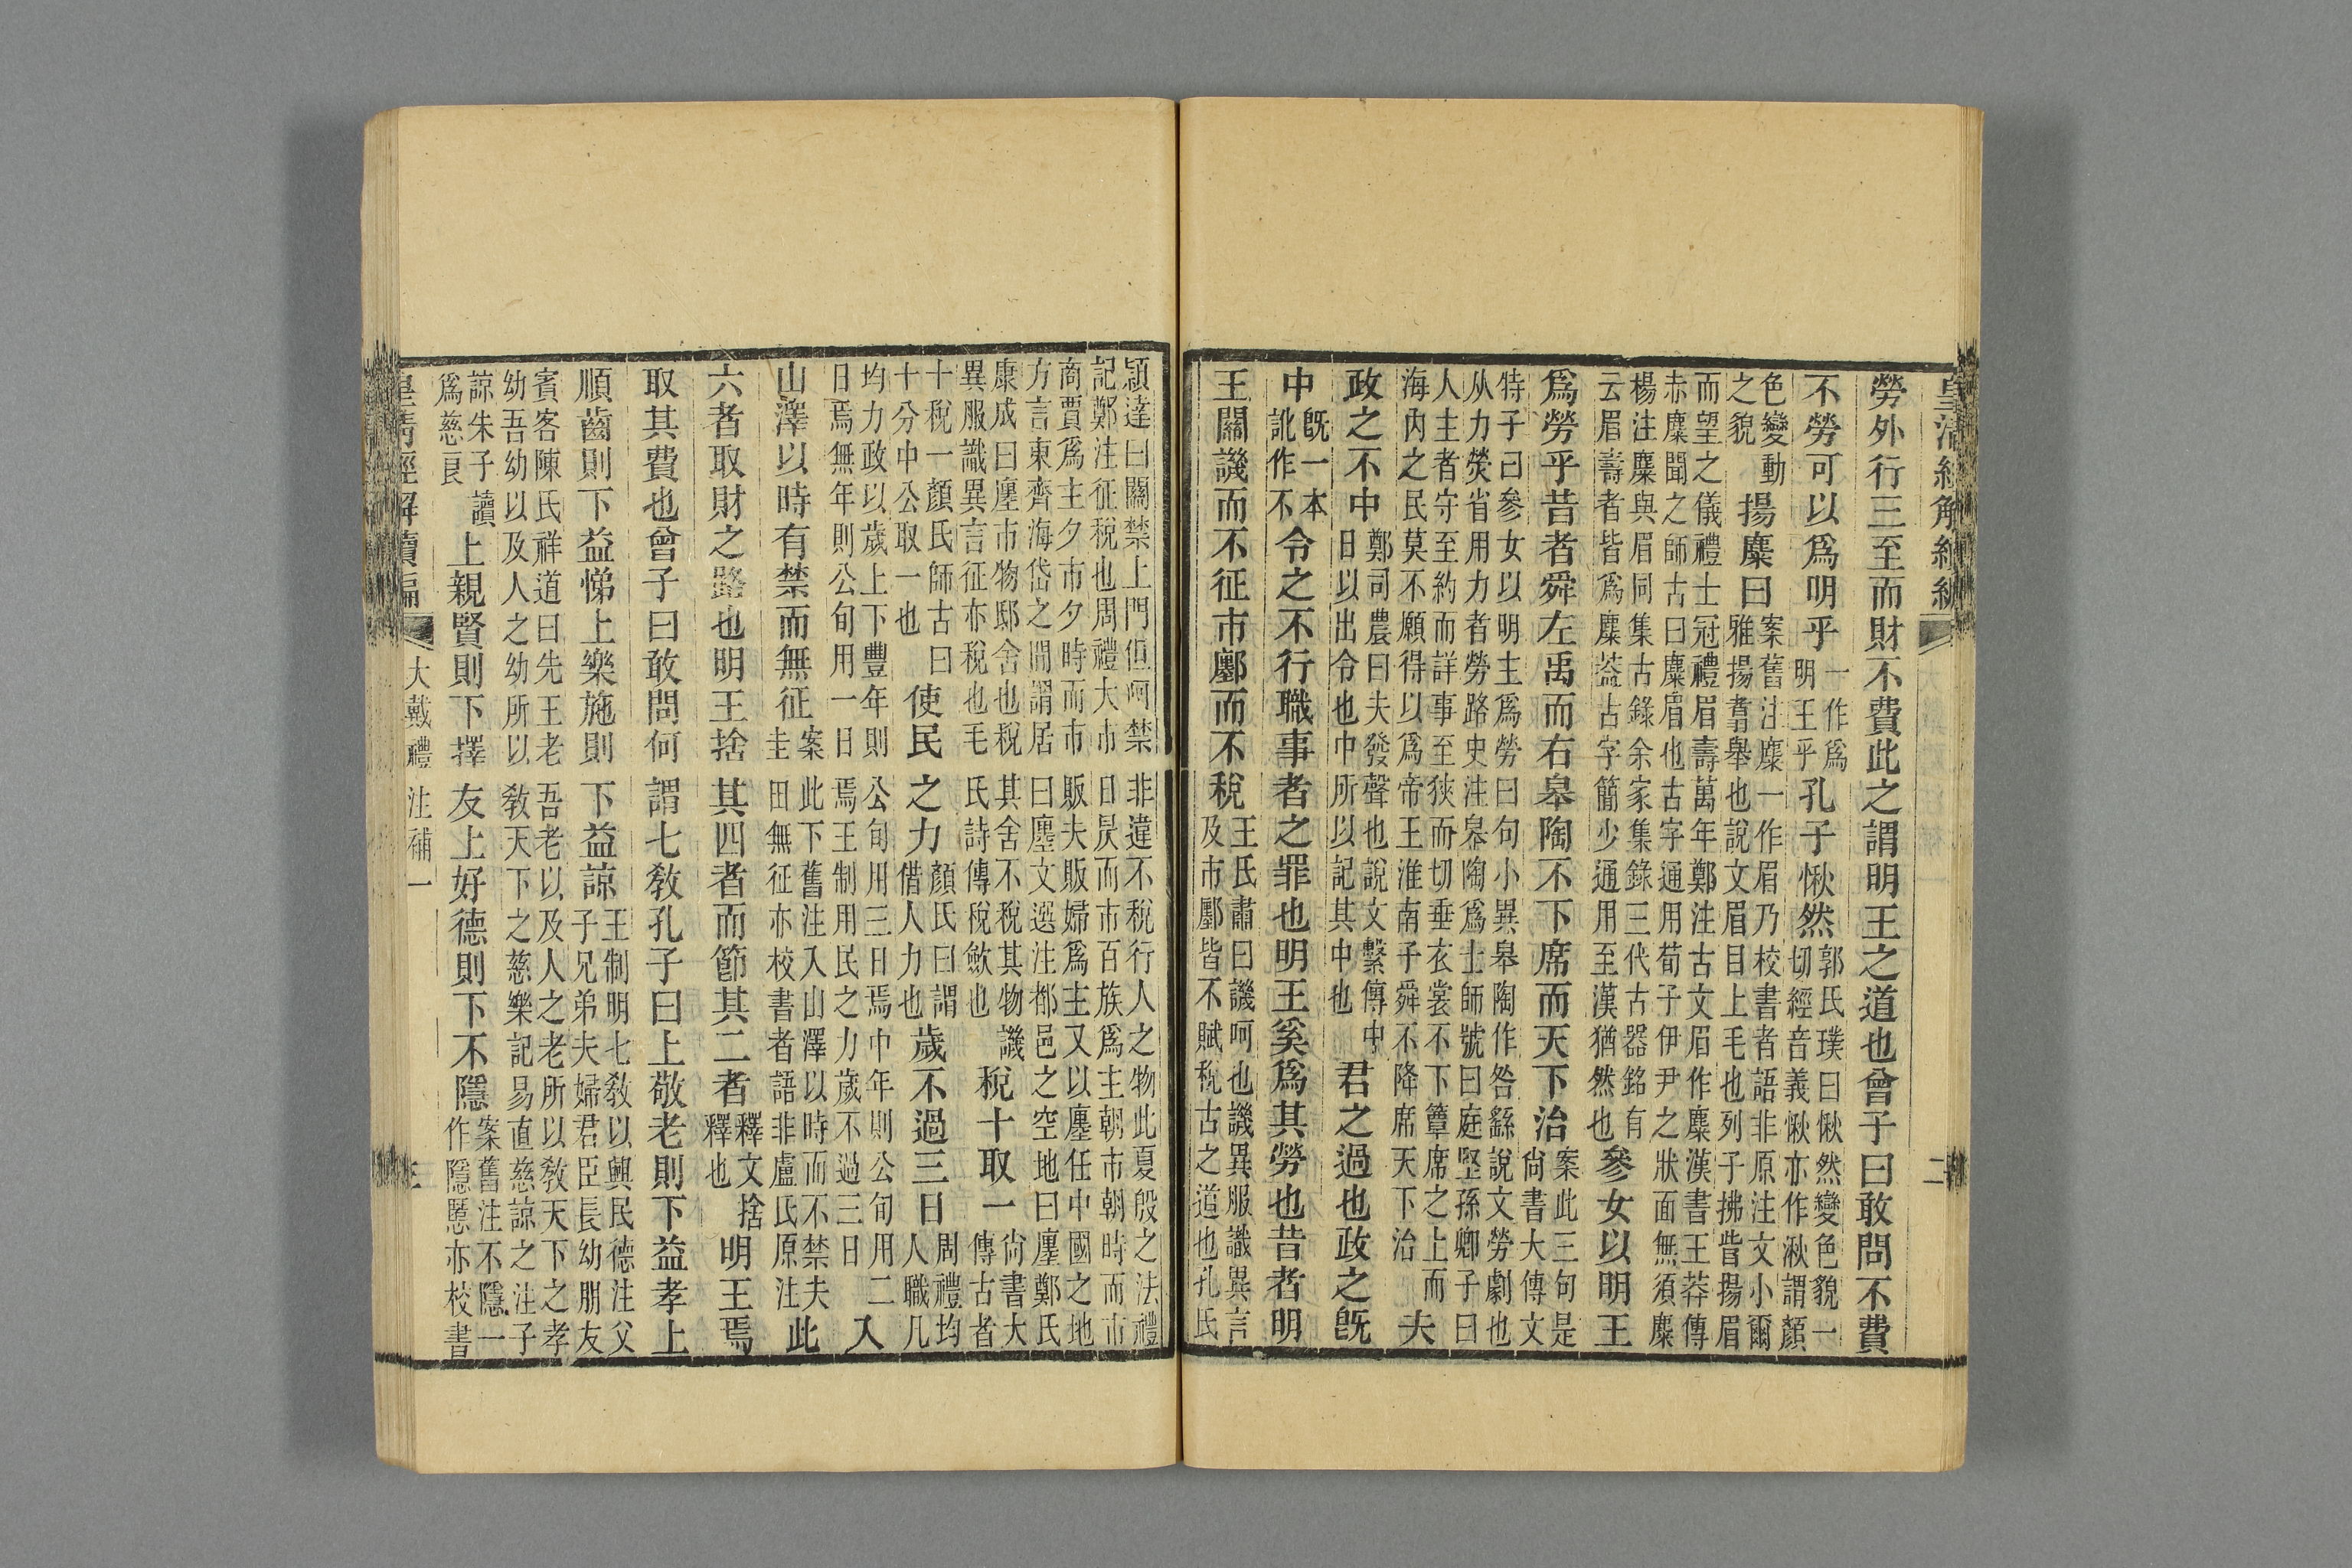 皇清經解續編 二
勞外行三至而財不費此之謂明王之道也曾子曰敢問不費
不勞可以爲明乎
一作爲
明王乎
孔子愀然
郭氏璞曰愀然變色貌一
切經音義愀亦作湫謂顏
色變動
之貌
揚麋曰
案舊注麋一作眉乃校書者語非原注文小爾
雅揚翥舉也說文眉目上毛也列子拂眥揚眉
而望之儀禮士冠禮眉壽萬年鄭注古文眉作麋漢書王莽傳
赤麋聞之師古曰麋眉也古字通用荀子伊尹之狀面無須麋
楊注麋與眉同集古錄余家集錄三代古器銘有
云眉壽者皆爲麋葢古字簡少通用至漢猶然也
參女以明王
爲勞乎昔者舜左禹而右皋陶不下席而天下治
案此三句是
尙書大傳文
特子曰參女以明主爲勞曰句小異皋陶作咎繇說文勞劇也
从力熒省用力者勞路史注皋陶爲士師號曰庭堅孫卿子曰
人主者守至約而詳事至狹而切垂衣裳不下簟席之上而
海內之民莫不願得以爲帝王淮南子舜不降席天下治
夫
政之不中
鄭司農曰夫發聲也說文繫傳中
日以出令也中所以記其中也
君之過也政之旣
中
旣一本
訛作不
令之不行職事者之罪也明王奚爲其勞也昔者明
王關譏而不征市鄽而不稅
王氏肅曰譏呵也譏異服識異言
及市鄽皆不賦稅古之道也孔氏
頴達曰關禁上門但呵禁非違不稅行人之物此夏殷之法禮
記鄭注征稅也周禮大市日昃而市百族爲主朝市朝時而市
商賈爲主夕市夕時而市販夫販婦爲主又以廛任中國之地
方言東齊海岱之閒謂居曰廛文選注都邑之空地曰廛鄭氏
康成曰廛市物邸舍也稅其舍不稅其物譏
異服識異言征亦稅也毛氏詩傳稅斂也
稅十取一
尙書大
傳古者
十稅一顏氏師古曰
十分中公取一也
使民之力
顏氏曰謂
借人力也
歲不過三日
周禮均
人職凡
均力政以歲上下豐年則公旬用三日焉中年則公旬用二
日焉無年則公旬用一日焉王制用民之力歲不過三日
入
山澤以時有禁而無征
案此下舊注入山澤以時而不禁夫
圭田無征亦校書者語非盧氏原注
此
六者取財之路也明王捨其四者而節其二者
釋文捨
釋也
明王焉
取其費也曾子曰敢問何謂七敎孔子曰上敬老則下益孝上
順齒則下益悌上樂施則下益諒
王制明七敎以興民德注父
子兄弟夫婦君臣長幼朋友
賓客陳氏祥道曰先王老吾老以及人之老所以敎天下之孝
幼吾幼以及人之幼所以敎天下之慈樂記易直慈諒之注子
諒朱子讀
爲慈良
上親賢則下擇友上好德則下不隱
案舊注不隱一
作隱慝亦校書
皇淸經解續編 大戴禮注補一